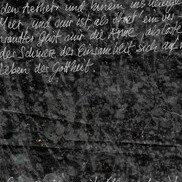 den Aether und hinein ins heilige
Meer, und mir ist, als öffnet' ein ver-
wandter Geist mir die Arme, als löste
der Schmerz der Einsamkeit sich auf i
Leben der Gottheit.